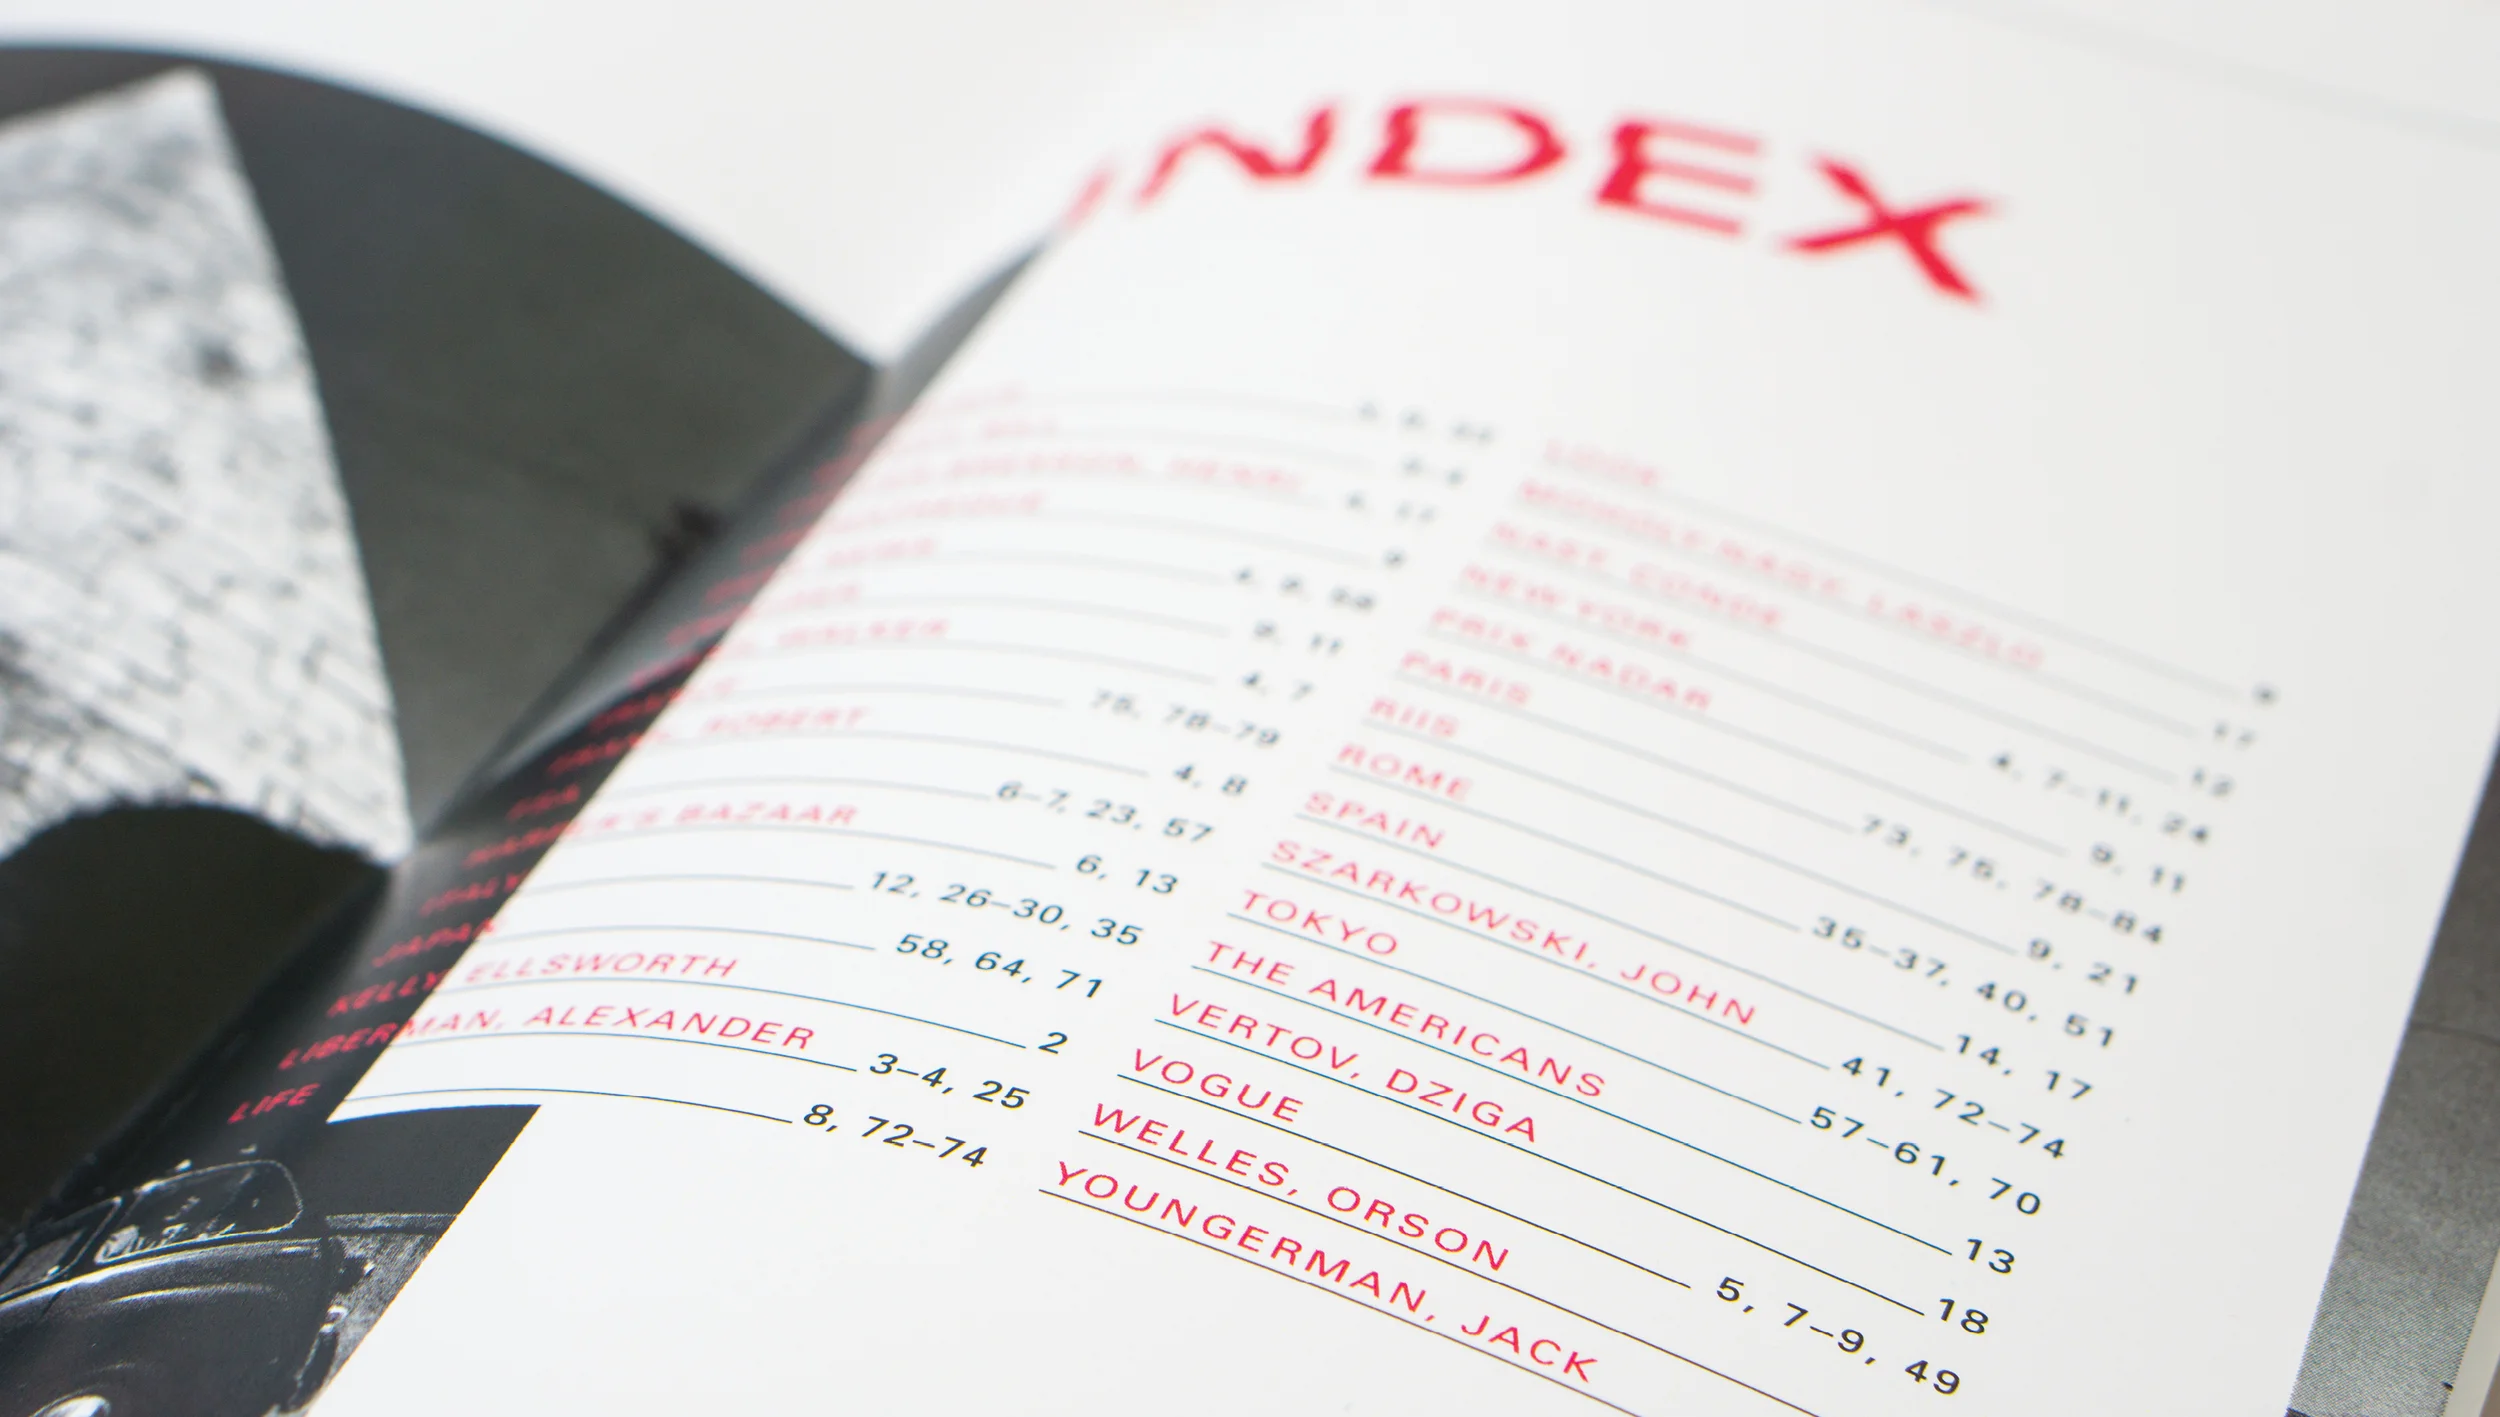 INDEX
9, 11
WALKER 4, 7
75, 78–79
ROBERT 4, 8
6–7, 23, 57
HARPER'S BAZAAR 6, 13
ITALY 12, 26–30, 35
JAPAN 58, 64, 71
KELLY, ELLSWORTH 2
LIBERMAN, ALEXANDER 3–4, 25
LIFE 8, 72–74
LOOK
MOHOLY-NAGY, LASZLO 17
NAST, CONDE 12
NEW YORK 4, 7–11, 24
PRIX NADAR 9, 11
PARIS 73, 75, 78–84
RIIS 9, 21
ROME 35–37, 40, 51
SPAIN 14, 17
SZARKOWSKI, JOHN 41, 72–74
TOKYO 57–61, 70
THE AMERICANS 13
VERTOV, DZIGA 18
VOGUE 5, 7–9, 49
WELLES, ORSON
YOUNGERMAN, JACK